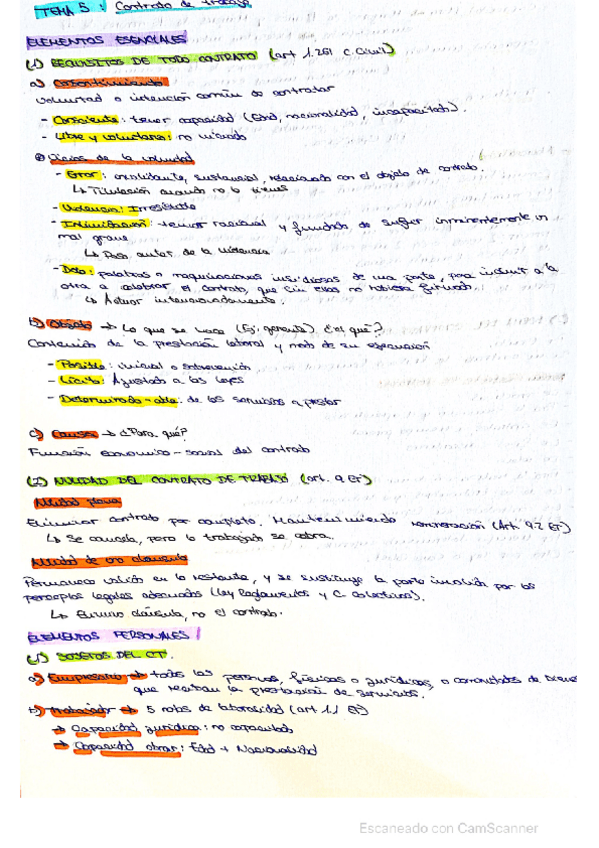 TEMA 5: Contrato de trabajo
ELEMENTOS ESENCIALES
(1) REQUISITOS DE TODO CONTRATO (art 1.261 C.Civil)
a) Consentimiento
Voluntad o intención común de contratar
- Consciente: tener capacidad (Edad, nacionalidad, incapacitado).
- Libre y voluntario: no viciado
Vicios de la voluntad
- Error: invalidante, sustancial, relacionado con el objeto de contrato.
↳ Titulación cuando no la tienes
- Violencia: Irresistible
- Intimidación: temor racional y fundado de sufrir inminentemente un
mal grave
↳ Paso antes de la violencia
- Dolo: palabras o maquinaciones insidiosas de una parte, para inducir a la
otra a celebrar el contrato, que sin ellas no hubiese firmado.
↳ Actuar intencionadamente.
b) Objeto → Lo que se hace (Ej: gerente) ¿el qué?
Contenido de la prestación laboral y modo de su
- Posible: inicial o sobrevenida
- Lícito: Ajustado a las leyes
- Determinado-able: de los servicios a prestar
c) Causa → ¿Para qué?
Función económico-social del contrato
(2) NULIDAD DEL CONTRATO DE TRABAJO (art. 9 ET)
Nulidad plena
Eliminar contrato por completo. Manteniimiendo remuneración (Art. 9.2 ET)
↳ Se cancela, pero lo trabajado se cobra.
Nulidad de una cláusula
Permanece válido en lo restante, y se sustituye la parte inválida por los
preceptos legales adecuados (Ley Reglamentos y C. Colectivos).
↳ Elimino cláusula, no el contrato.
ELEMENTOS PERSONALES
(1) SUJETOS DEL CT
a) Empresario → todas las personas, físicas o jurídicas, o comunidades de bienes
que reciban la prestación de servicios.
b) Trabajador → 5 notas de laboralidad (art 1.1 ET)
→ Capacidad jurídica: no capacitado
→ Capacidad obrar: Edad + Nacionalidad
Escaneado con CamScanner